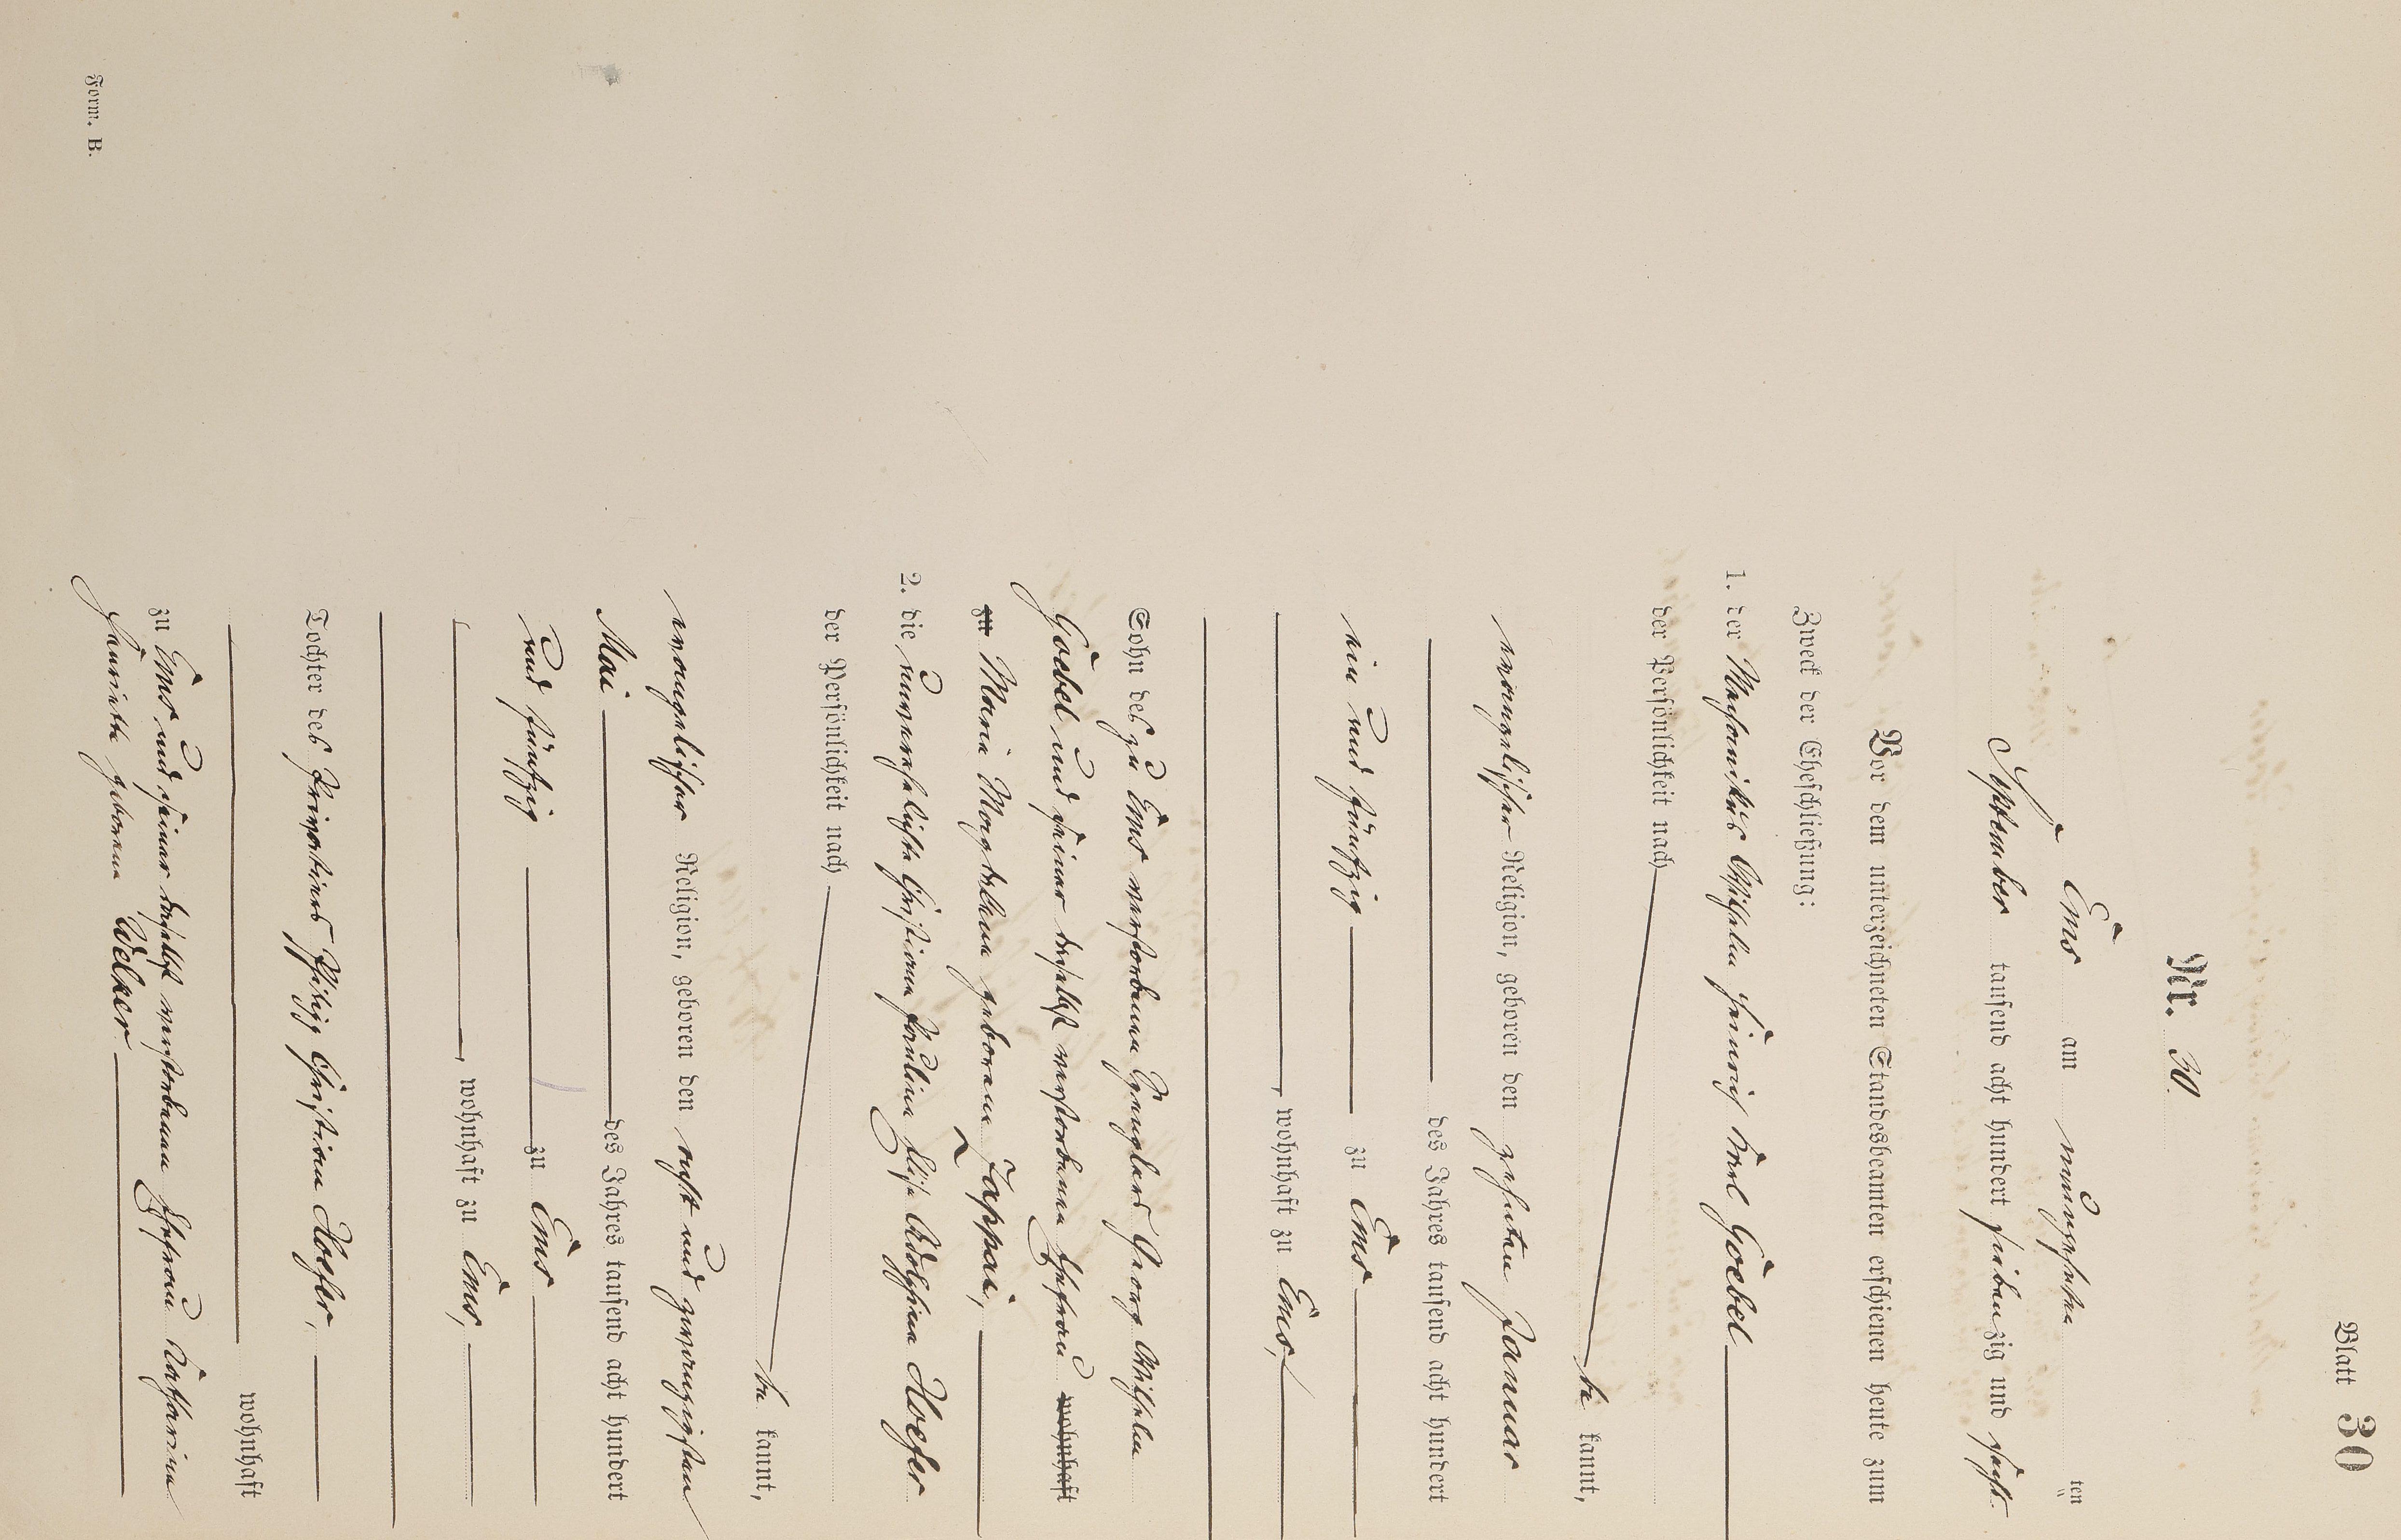 Blatt 30
Nr. 30.
Ems am neunzehn ten
September tausend acht hundert siebenzig und sechs
Vor dem unterzeichneten Standesbeamten erschienen heute zum
Zweck der Eheschließung:
1. der Mechanikus Wilhelm Heinrich Karl Goebel
der Persönlichkeit nach
be kannt,
evangelischer Religion, geboren den zehnten Januar
des Jahres tausend acht hundert
ein und fünfzig zu Ems
, wohnhaft zu Ems,
Sohn des zu Ems verstorbenen Georg Wilhelm
Goebel und seiner daselbst verstorbenen Ehefrau wohnhaft
zu Maria Magdalena geborenen Zappai,
2. die unverehelichte Christiane Pauline Elise Adolphine Hoefer
der Persönlichkeit nach
be kannt,
evangelischer Religion, geboren den acht und zwanzigsten
Mai des Jahres tausend acht hundert
und fünfzig zu Ems
, wohnhaft zu Ems,
Tochter des Privatiers Philipp Christian Hoefer,
wohnhaft
zu Ems und seiner daselbst verstorbenen Ehefrau Katharina
Henriette geborenen Welker
Form. B.